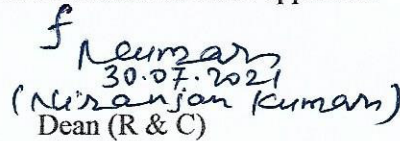 f
NKumar
30.07.2021
(Niranjan Kumar)
Dean (R & C)